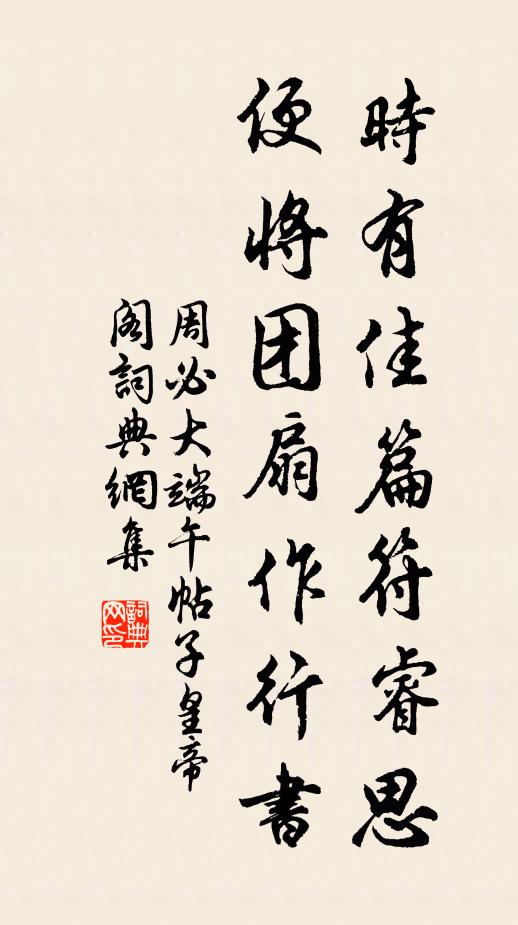 時有佳篇符睿思
便將团扇作行書
周必大端午帖子皇帝
阁詞典網集
詞典网印